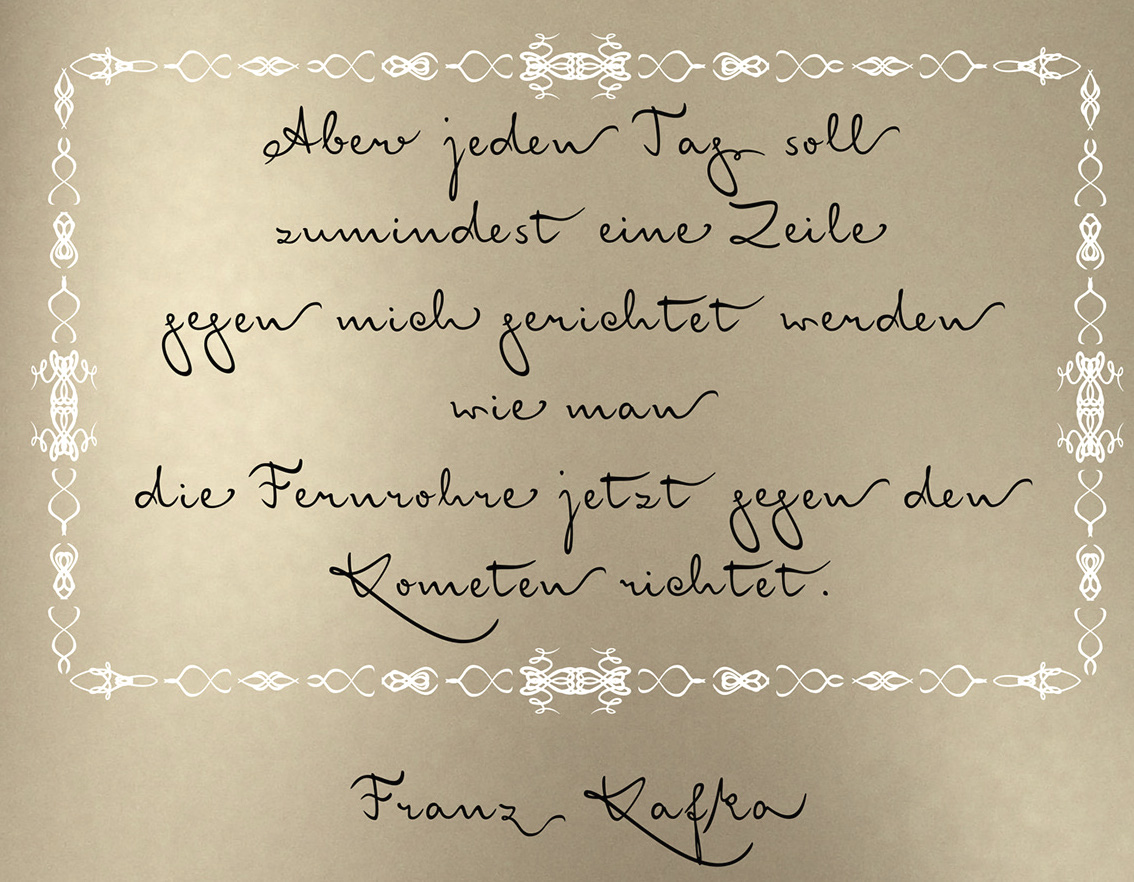 Aber jeden Tag soll
zumindest eine Zeile
gegen mich gerichtet werden
wie man
die Fernrohre jetzt gegen den
Kometen richtet.
Franz Kafka